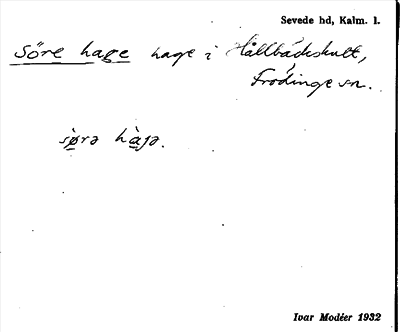 Sevede hd, Kalm. l.
Söre hage hage i Hållbäckshult,
Frödinge sn.
sø̀rə hàgə.
Ivar Modéer 1932